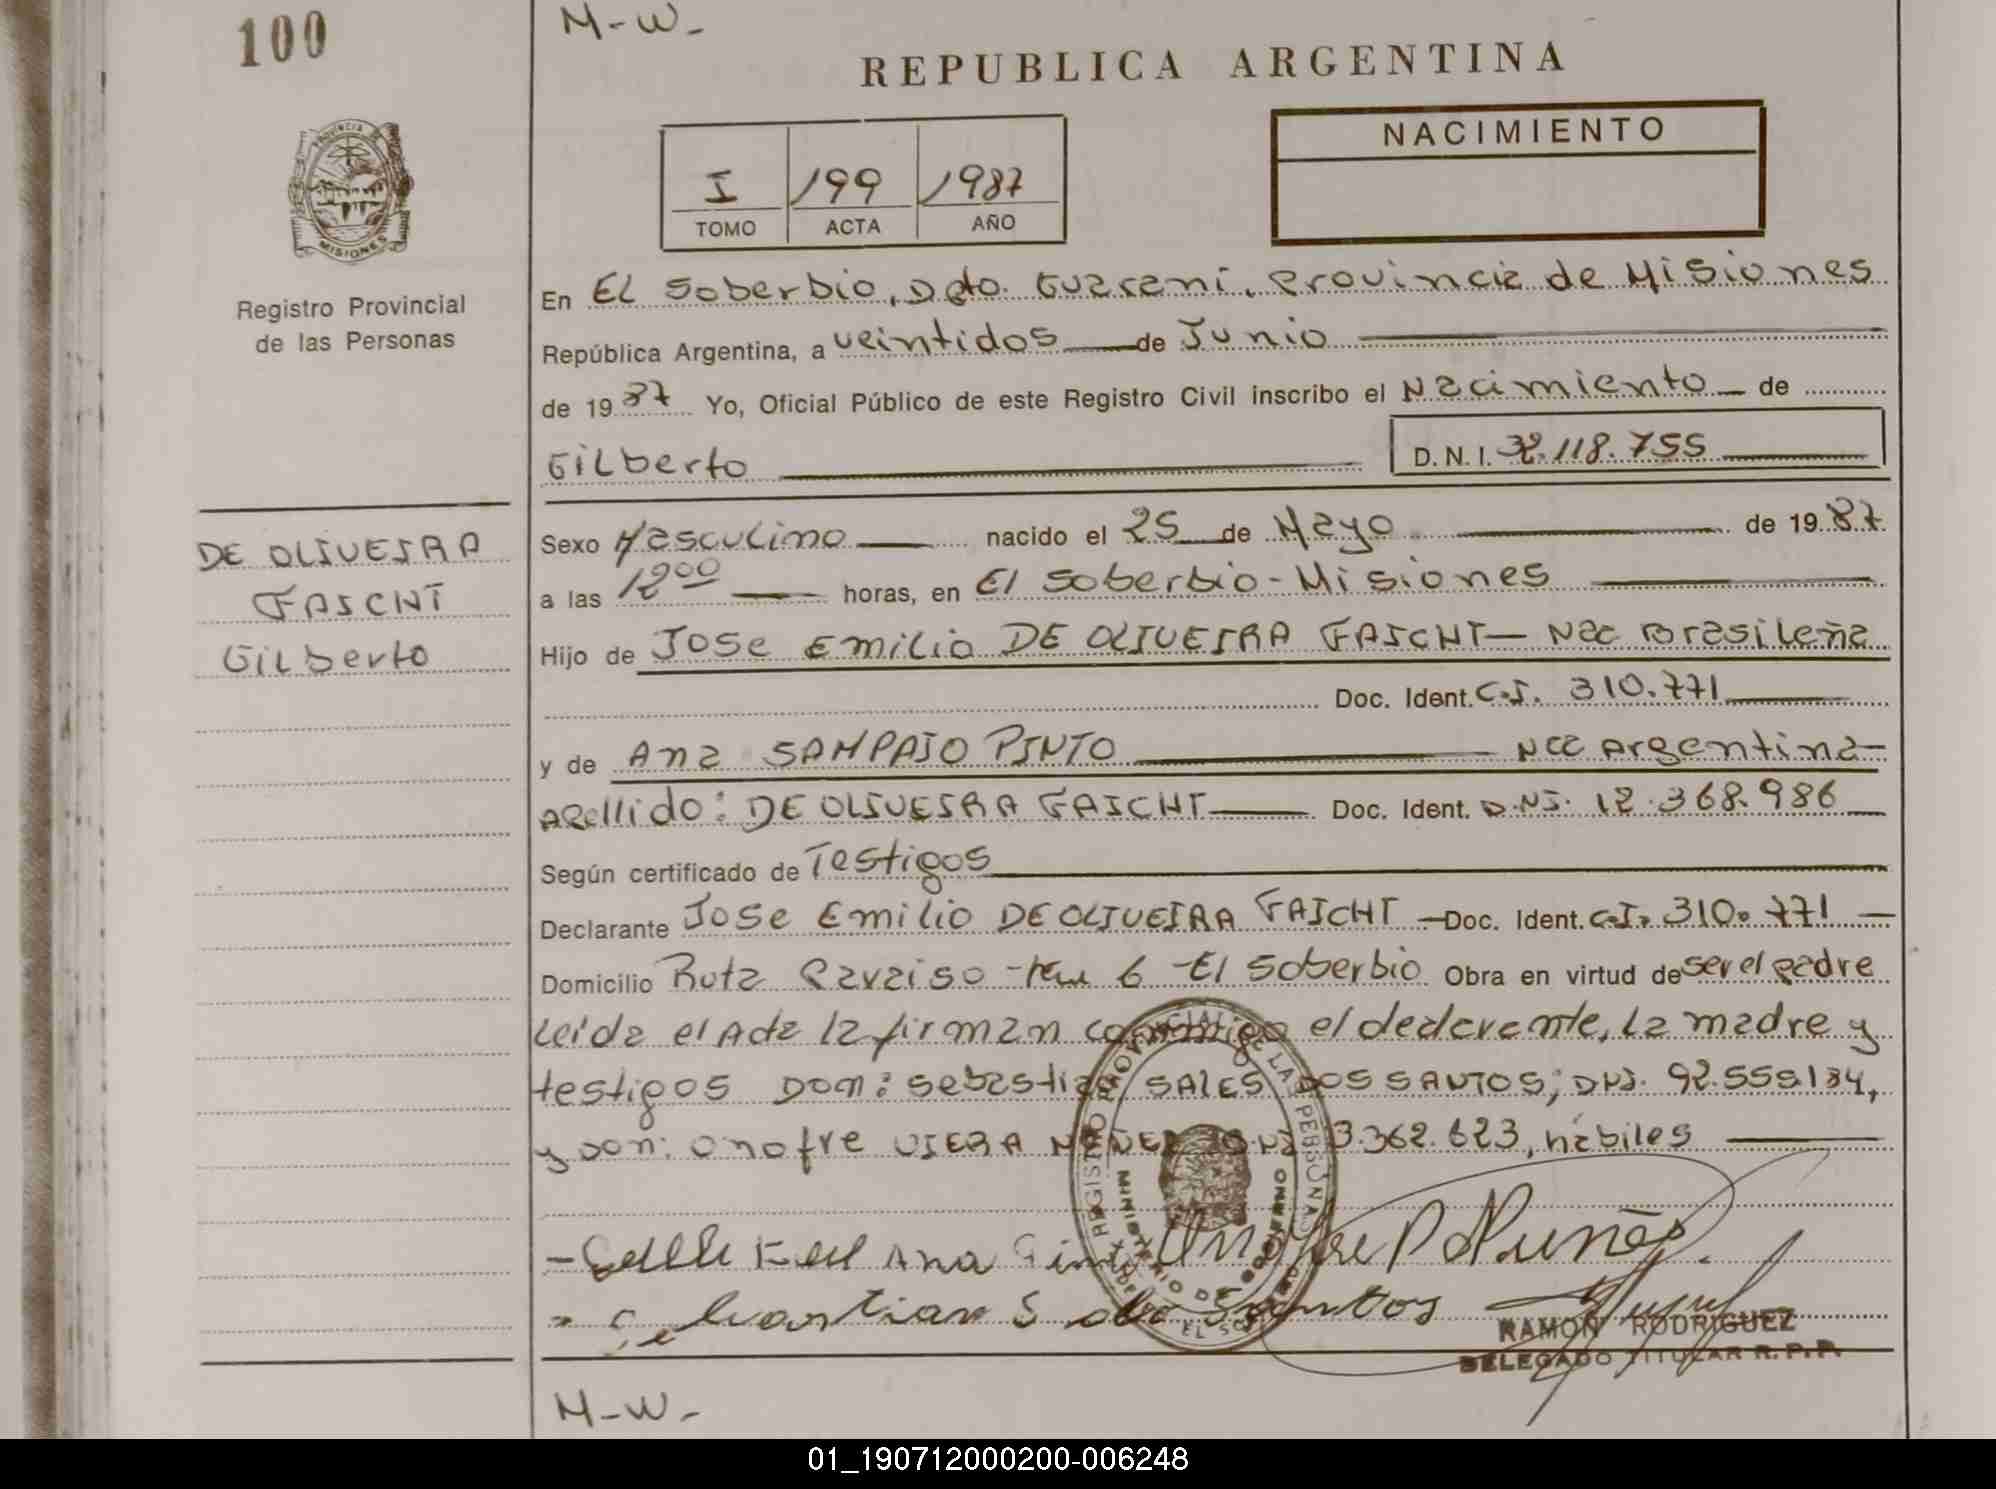 100
M-W-
REPUBLICA ARGENTINA
NACIMIENTO
I 199 1987
TOMO ACTA AÑO
PROVINCIA DE
MISIONES
Registro Provincial
de las Personas
En EL Soberbio, Dpto. Guarani, Provincia de Misiones
República Argentina, a veintidos de Junio
de 1987 Yo, Oficial Público de este Registro Civil inscribo el Nacimiento de
Gilberto D.N.I. 32.118.755
DE OLIVEIRA
FAICHT
Gilberto
Sexo Masculino nacido el 25 de Mayo de 1987
a las 12 00 horas, en El Soberbio - Misiones
Hijo de Jose Emilio DE OLIVEIRA FAICHT - Nac Brasileña
Doc. Ident. C.I. 310.771
y de Ana SAMPAIO PINTO Nac Argentina
Apellido: DE OLIVEIRA FAICHT Doc. Ident. D.NI. 12.368.986
Según certificado de Testigos
Declarante Jose Emilio DE OLIVEIRA FAICHT - Doc. Ident. C.I. 310.771
Domicilio Ruta Paraiso - Km 6 - El Soberbio Obra en virtud de ser el padre
Leida el Acta la firman conmigo el declarante, la madre y
testigos Don: Sebastian SALES DOS SANTOS; DNI. 92.555.134,
y Don: Onofre VIERA 3.362.623, hábiles
REGISTRO PROVINCIAL DE LAS PERSONAS
MINISTERIO DE GOBIERNO
Ana
Onofre P Nunes.
Sebastian S dos Santos
RAMON RODRIGUEZ
DELEGADO TITULAR R.P.P.
M-W-
01_190712000200-006248